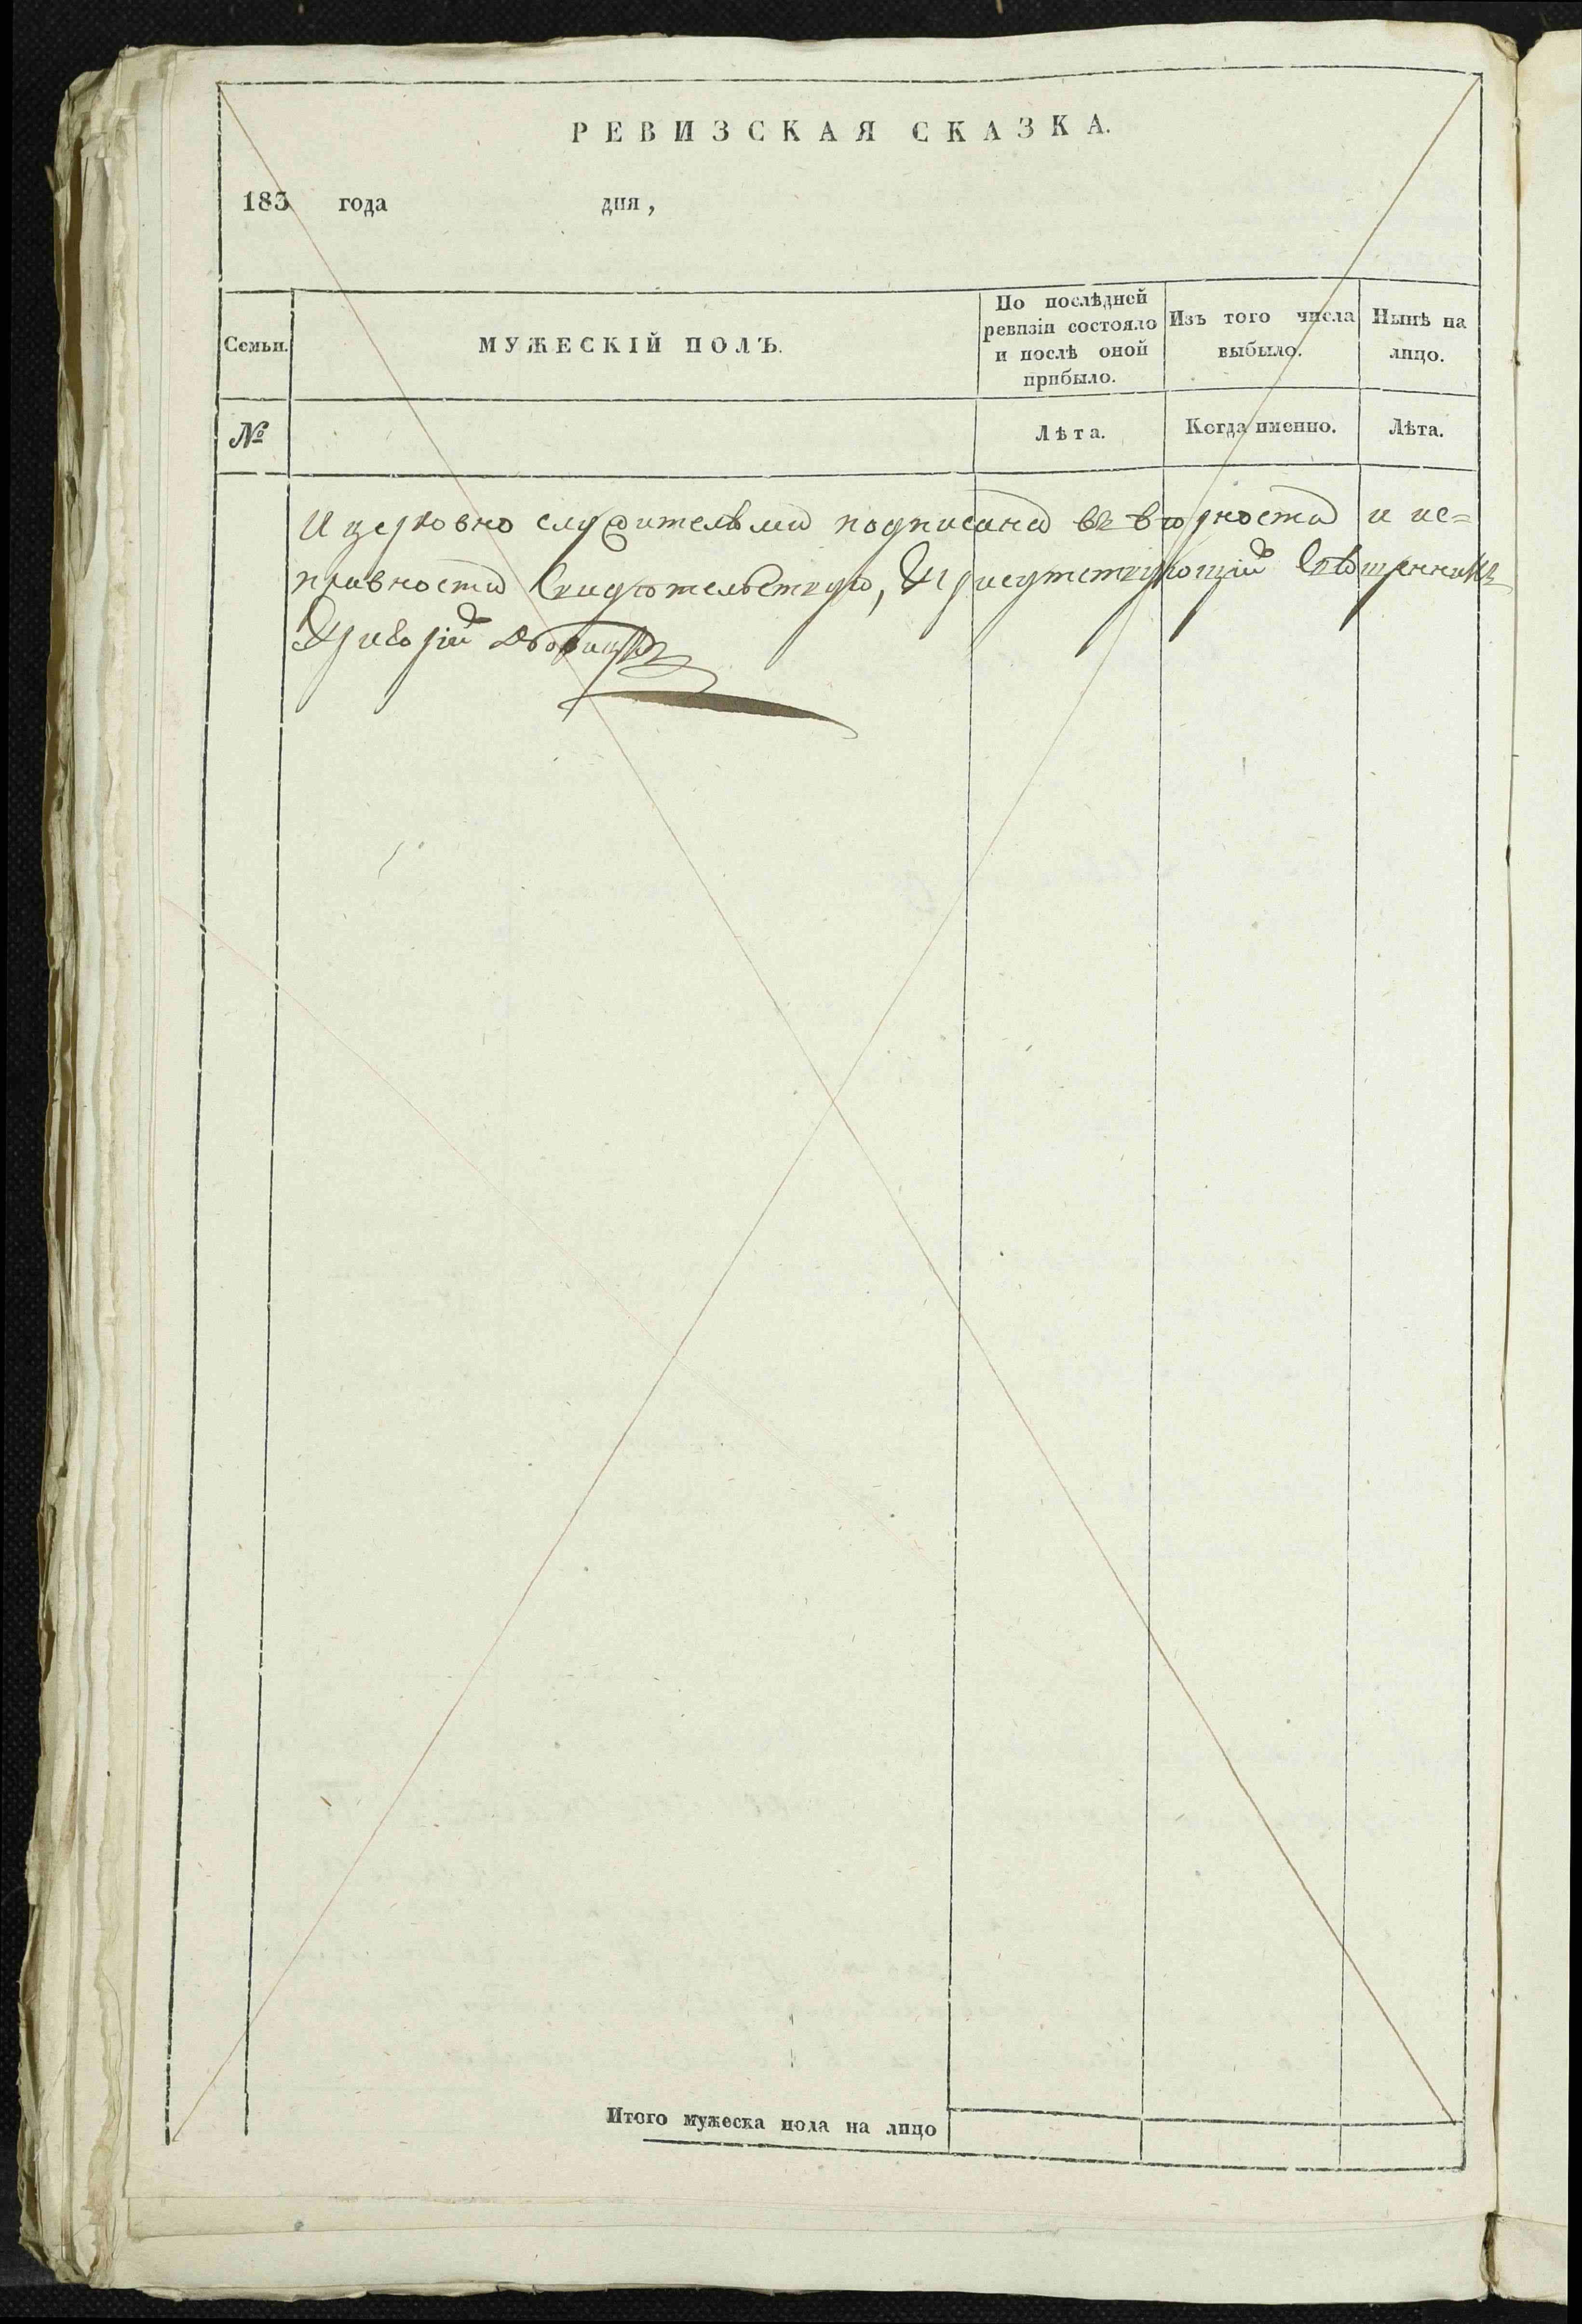 РЕВИЗСКАЯ СКАЗКА.
183 года дня,
Семьи.
МУЖЕСКІЙ ПОЛЪ.
По послѣдней
ревизіи состояло
и послѣ оной
прибыло.
Изъ того числа
выбыло.
Нынѣ на
лицо.
№
Лѣта.
Когда именно.
Лѣта.
И церковно служительми подписана въ вѣрности и ис=
правности Свидѣтельствую, Присутствующій Священникъ
Григорій
Итого мужеска пола на лицо